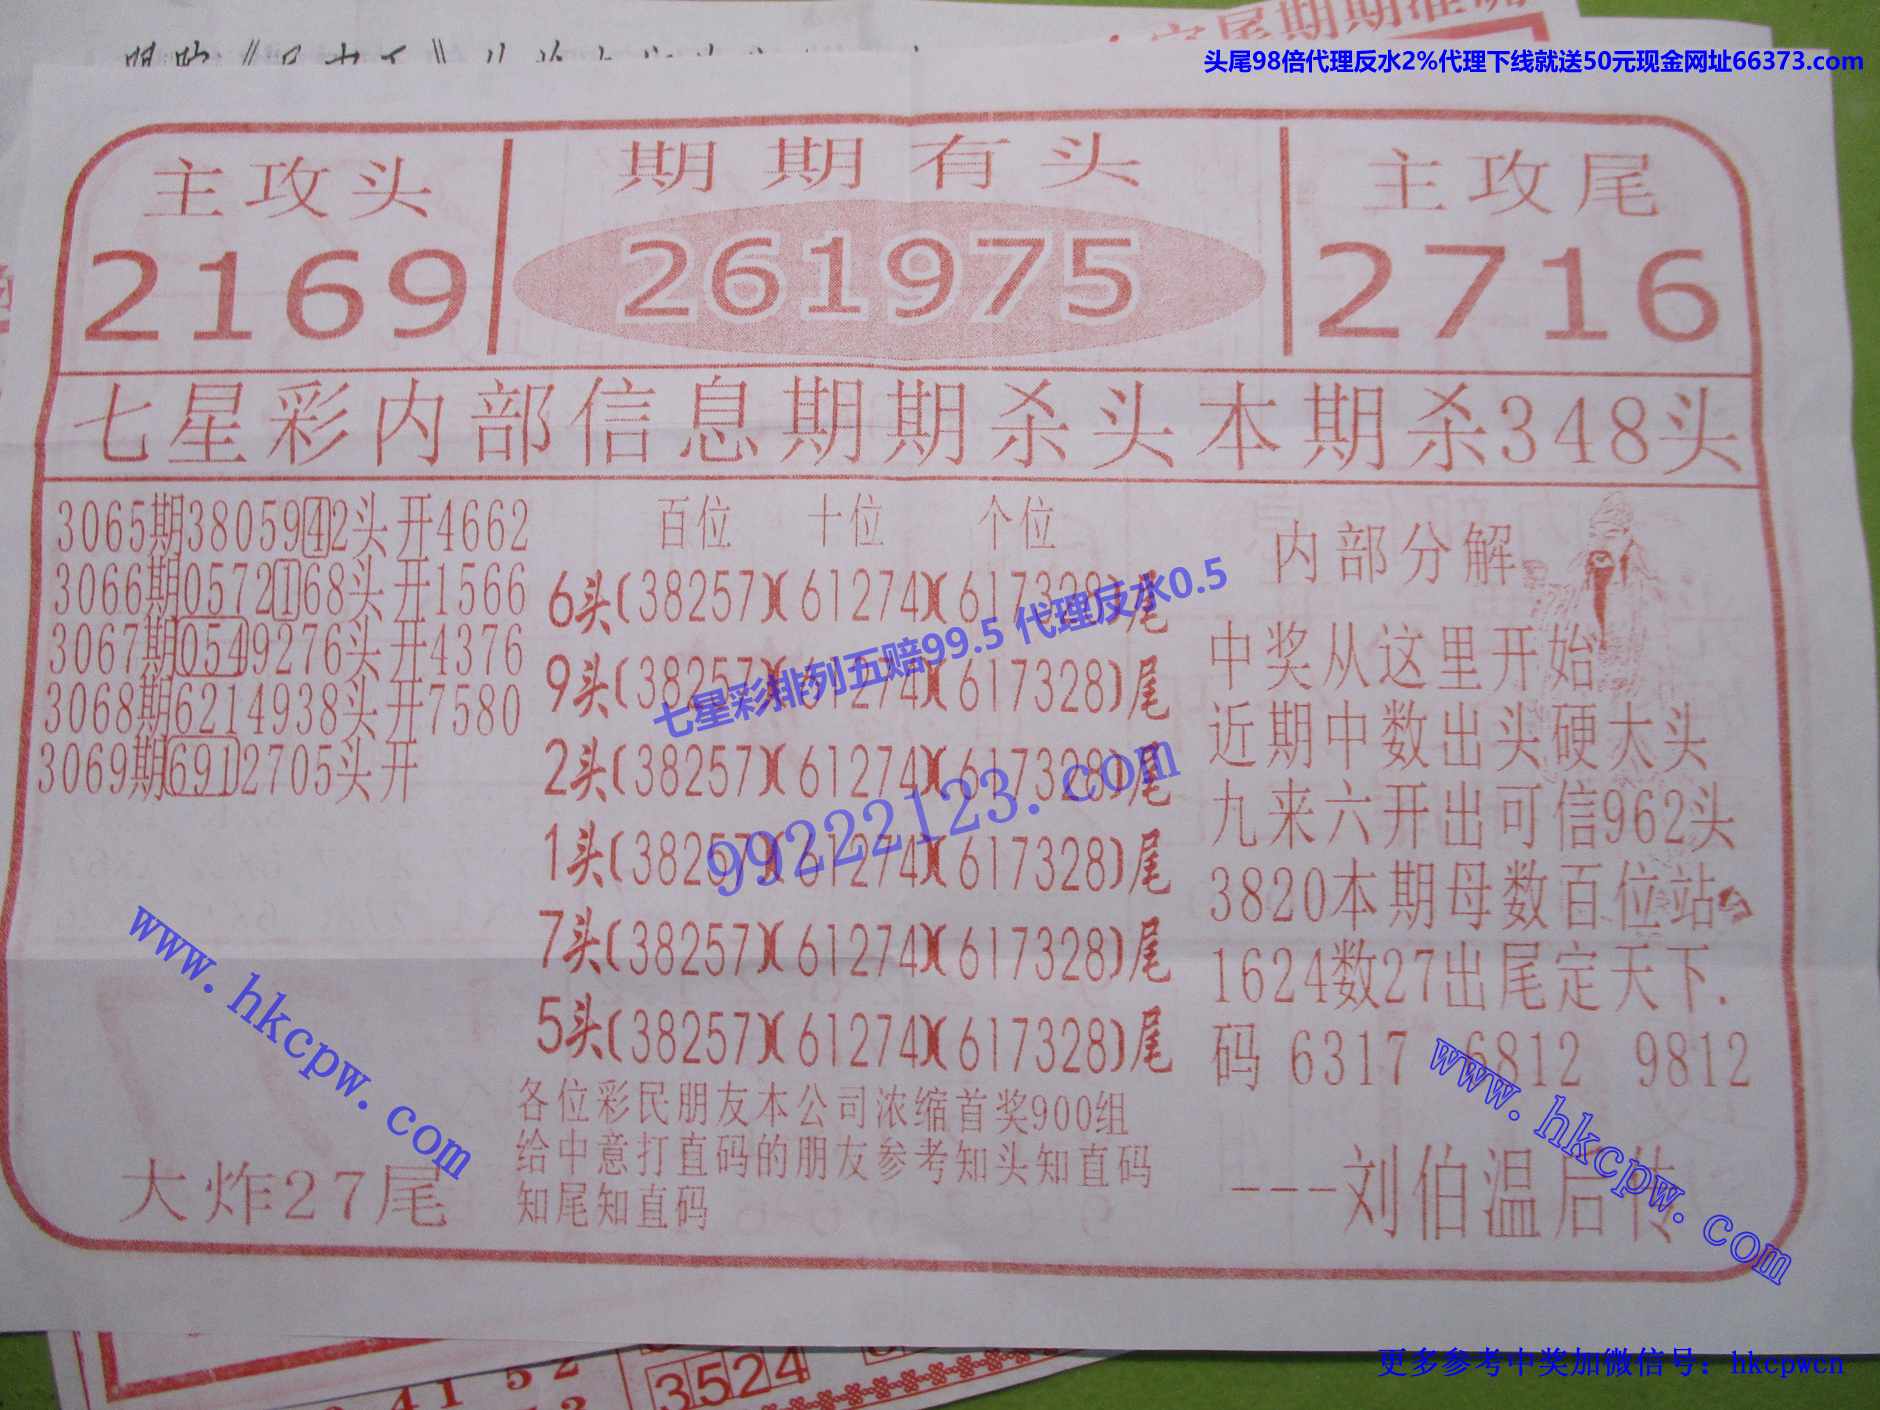 头尾98倍代理反水2%代理下线就送50元现金网址66373.com
主攻头
2169
期期有头
261975
主攻尾
2716
七星彩内部信息期期杀头本期杀348头
3065期3805942头开4662
3066期0572168头开1566
3067期0549276头开4376
3068期6214938头开7580
3069期6912705头开
百位 十位 个位
6头(38257)(61274)(617328)尾
9头(38257)(61274)(617328)尾
2头(38257)(61274)(617328)尾
1头(38257)(61274)(617328)尾
7头(38257)(61274)(617328)尾
5头(38257)(61274)(617328)尾
七星彩排列五赔99.5 代理反水0.5
99222123.com
各位彩民朋友本公司浓缩首奖900组
给中意打直码的朋友参考知头知直码
知尾知直码
内部分解
中奖从这里开始
近期中数出头硬太头
九来六开出可信962头
3820本期母数百位站
1624数27出尾定天下.
码 6317 6812 9812
---刘伯温后传
大炸27尾
www.hkcpw.com
www.hkcpw.com
41 52
3524
更多参考中奖加微信号：hkcpwcn